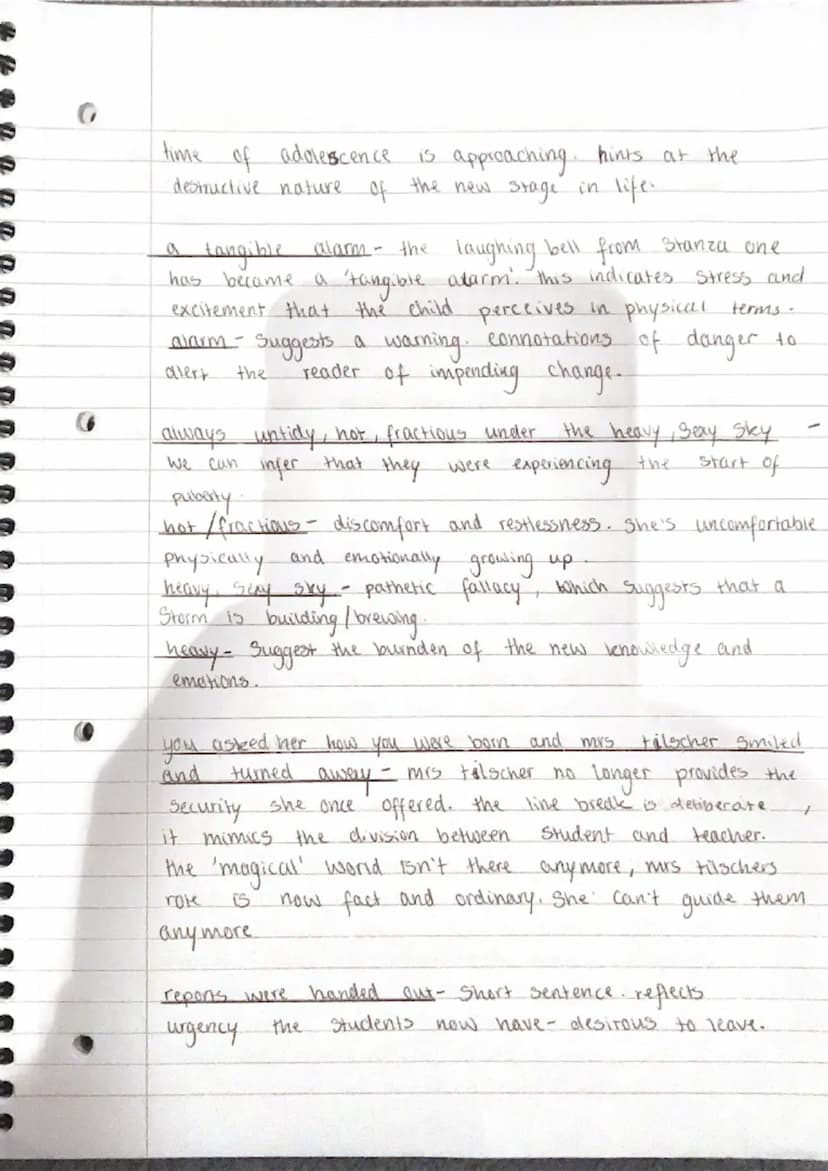 time of adolescence is approaching. hints at the
destructive nature of the new stage in life.
a tangible alarm - the laughing bell from Stanza one
has became a 'tangible alarm'. this indicates stress and
excitement that the child perceives in physical terms.
alarm - suggests a warning. connotations of danger to
alert the reader of impending change.
always untidy, hot, fractious under the heavy, sexy sky -
we can infer that they were experiencing the start of
puberty.
hot/fractious - discomfort and restlessness. She's uncomfortable
physically and emotionally growing up.
heavy, sexy sky - pathetic fallacy, which suggests that a
Storm is building/brewing.
heavy - suggest the burnden of the new knowledge and
emotions.
you asked her how you were born and mrs tilscher smiled
and turned away - mrs tilscher no longer provides the
security she once offered. the line break is deliberate,
it mimics the division between student and teacher.
the 'magical' world isn't there anymore, mrs tilschers
role is now fact and ordinary. She can't guide them
anymore
reports were handed out - short sentence. reflects
urgency the students now have - desirous to leave.